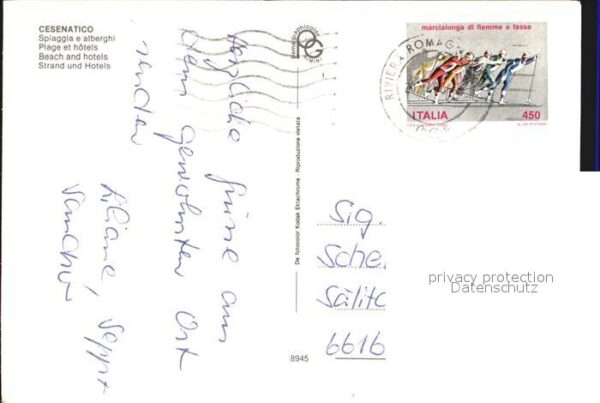 CESENATICO
Spiaggia e alberghi
Plage et hôtels
Beach and hotels
Strand und Hotels
marcialonga di fiemme e fassa
ITALIA 450
RIVIERA ROMAG
Herzliche Grüsse aus
dem gewohnten Ort
senden
Liliane, Seppi +
Da fotocolor Kodak Ektachrome - Riproduzione vietata
8945
Sig.
Sche
Sälit
6616
privacy protection
Datenschutz